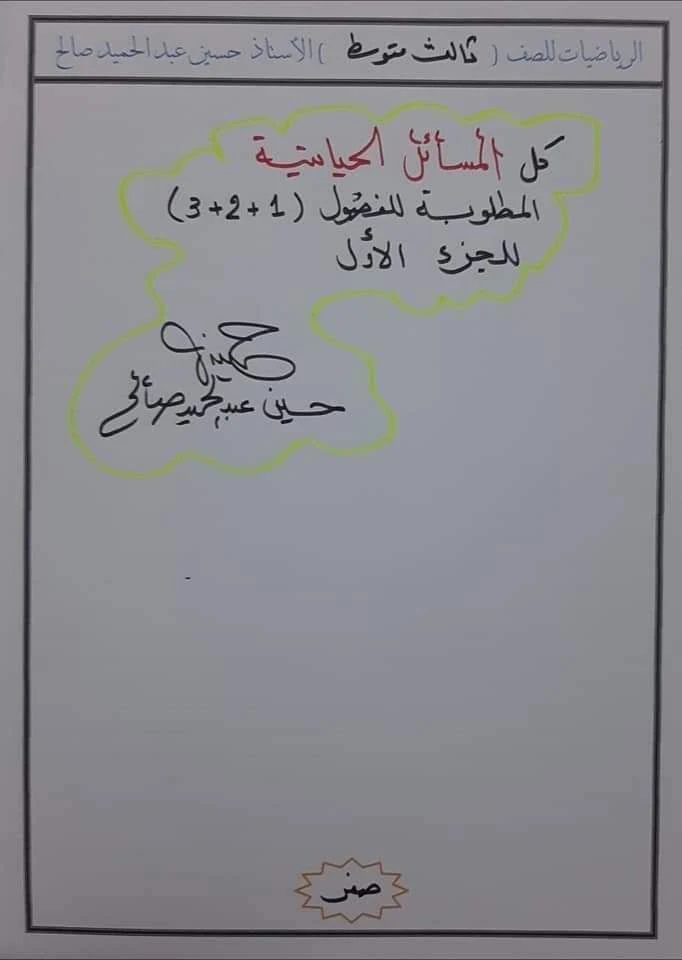 الرياضيات للصف ( ثالث متوسط ) الأستاذ حسين عبد الحميد صالح
كل المسائل الحياتية
المطلوبة للفصول (1+2+3)
للجزء الأول
حسين
حسين عبد الحميد صالح
صفر